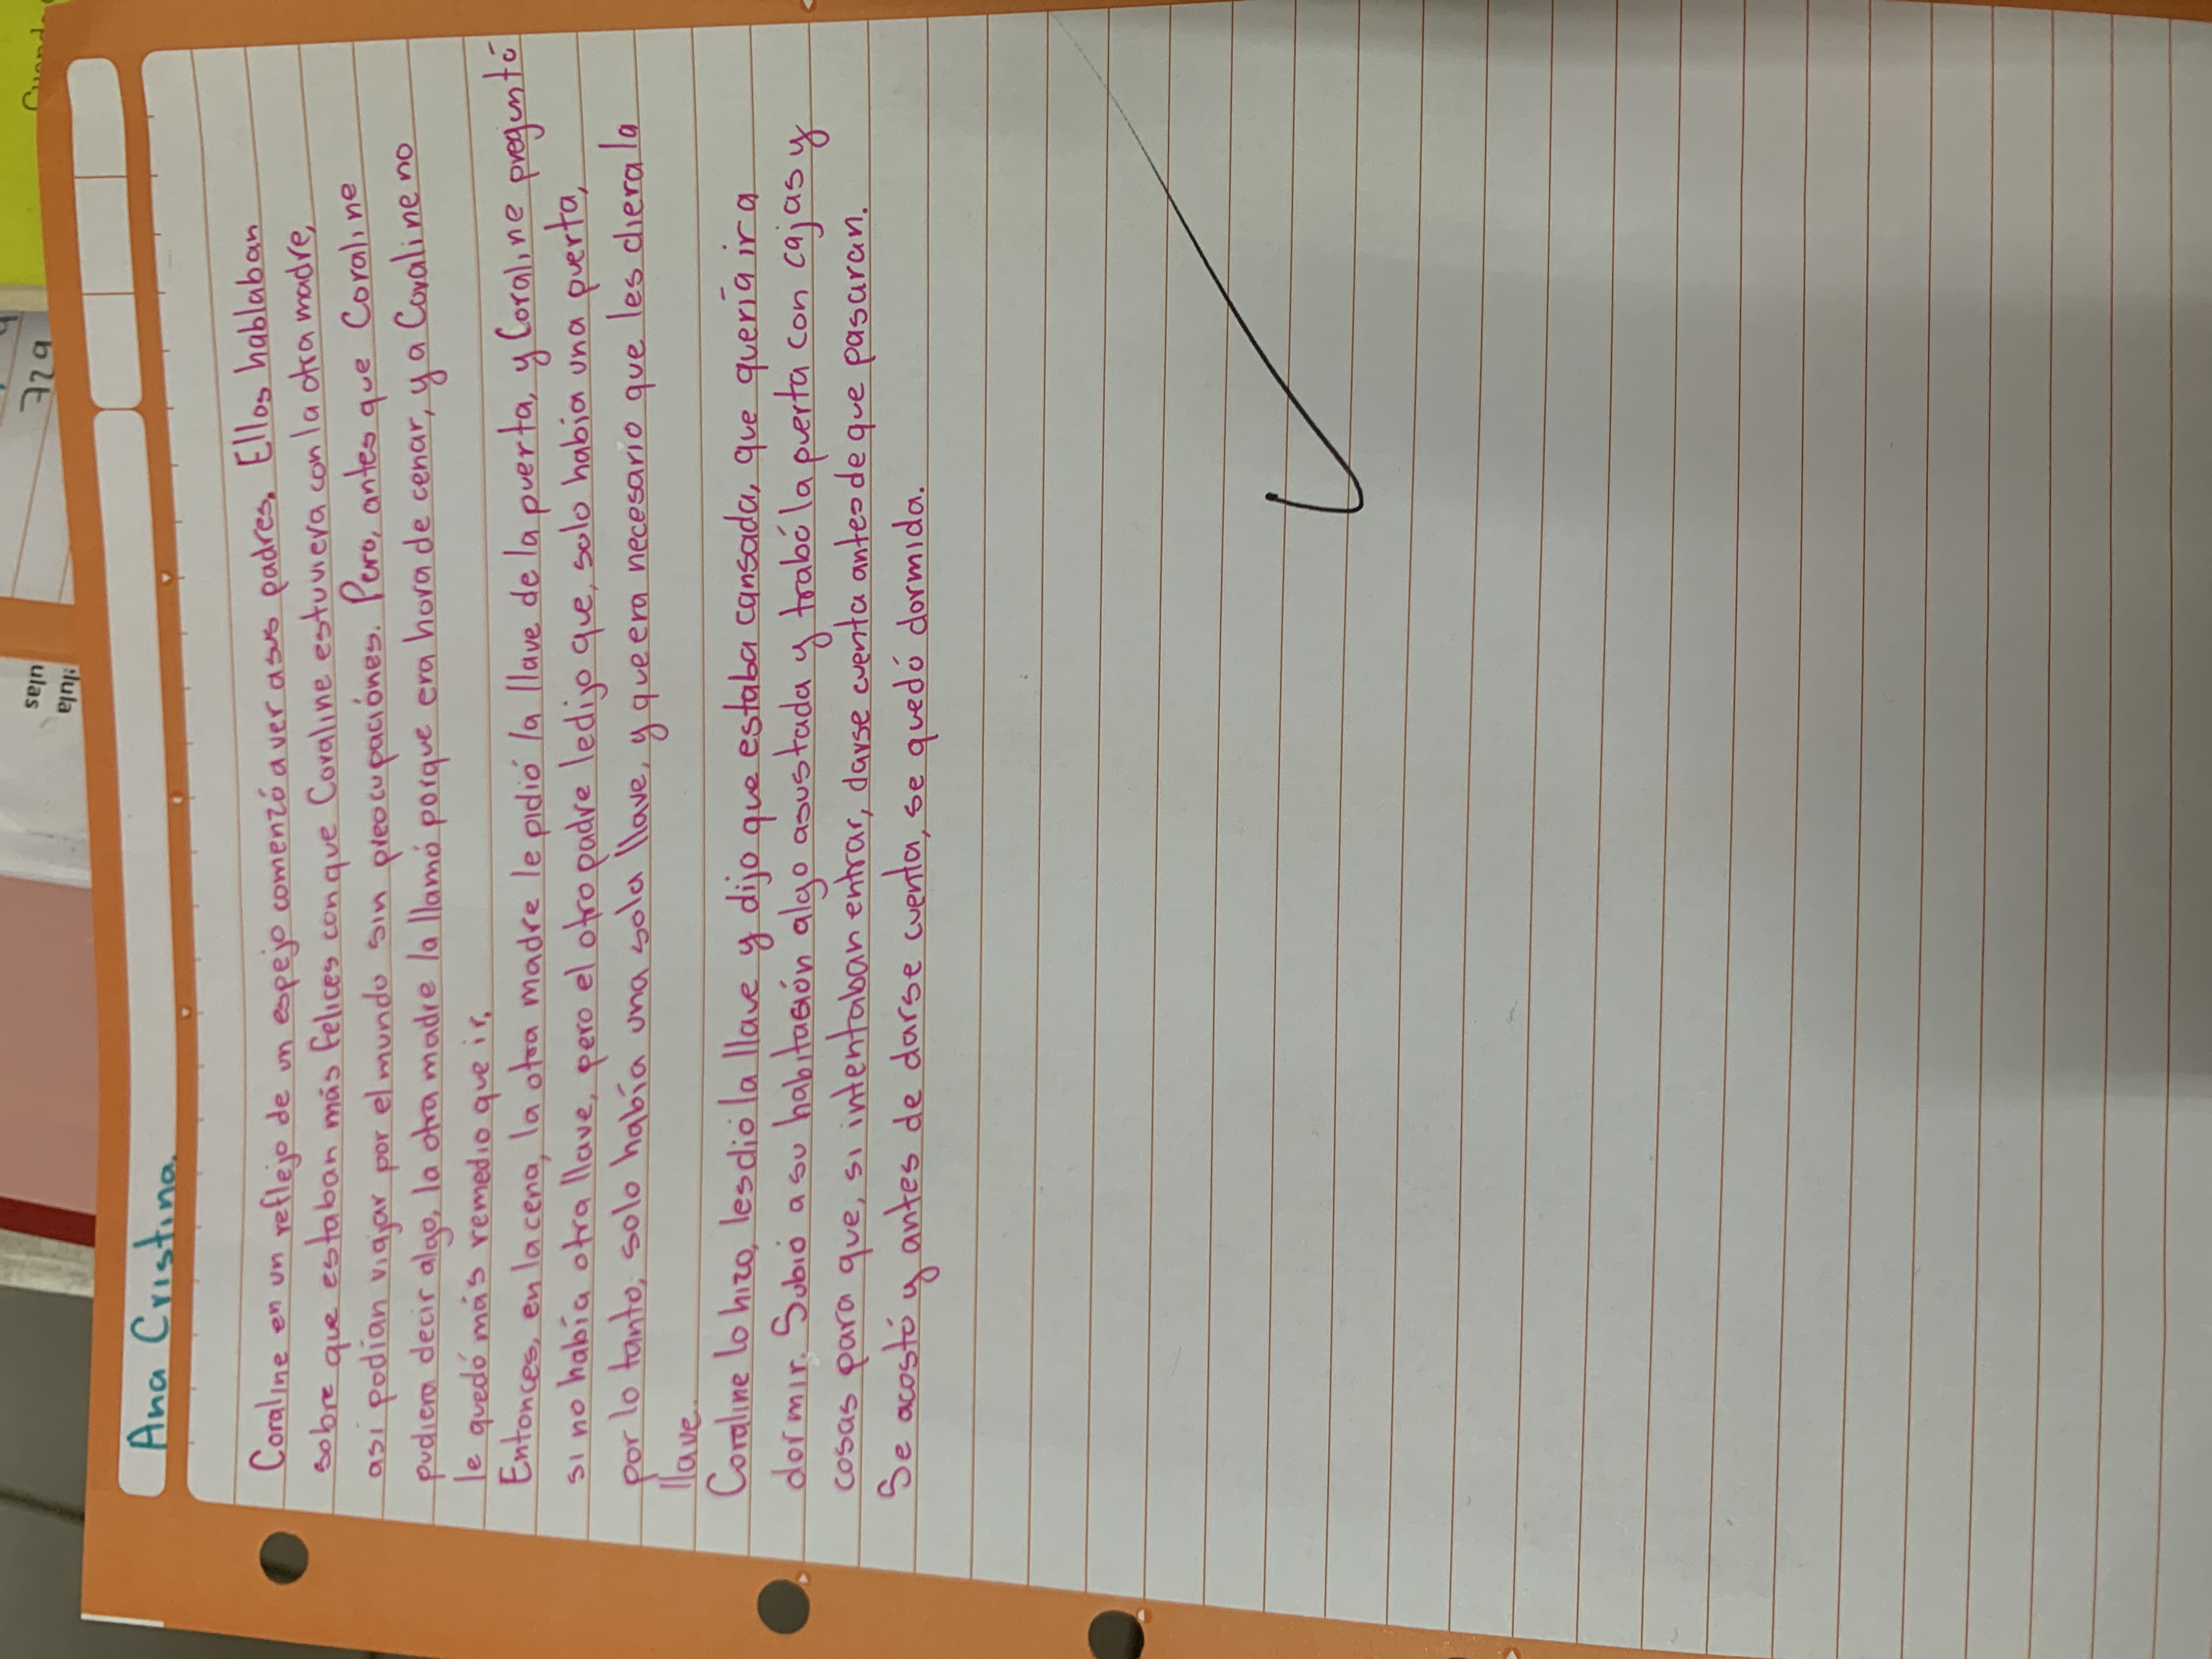 Ana Cristina.
Coraline en un reflejo de un espejo comenzó a ver a sus padres. Ellos hablaban
sobre que estaban más felices con que Coraline estuviera con la otra madre,
asi podían viajar por el mundo sin preocupaciónes. Pero, antes que Coraline
pudiera decir algo, la otra madre la llamó porque era hora de cenar, y a Coraline no
le quedó más remedio que ir.
Entonces, en la cena, la otra madre le pidió la llave de la puerta, y Coraline preguntó
si no había otra llave, pero el otro padre le dijo que, solo había una puerta,
por lo tanto, solo había una sola llave, y que era necesario que les diera la
llave.
Coraline lo hizo, les dió la llave y dijo que estaba cansada, que quería ir a
dormir. Subió a su habitación algo asustada y trabó la puerta con cajas y
cosas para que, si intentaban entrar, darse cuenta antes de que pasaran.
Se acostó y antes de darse cuenta, se quedó dormida.
729
ilula
ulas